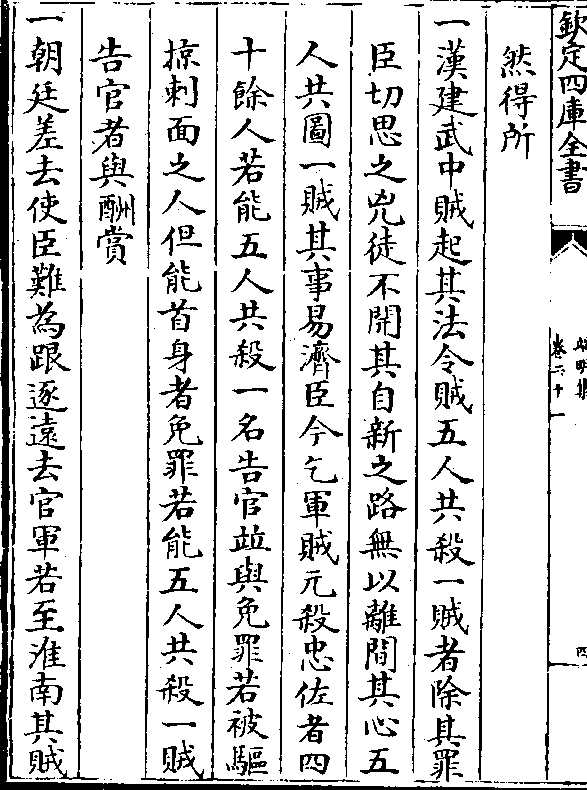 欽定四庫全書
卷六十一
四
然得所
一漢建武中賊起其法令賊五人共殺一賊者除其罪
臣切思之兇徒不開其自新之路無以離間其心五
人共圖一賊其事易濟臣今乞軍賊元殺忠佐者四
十餘人若能五人共殺一名告官竝與免罪若被驅
掠刺面之人但能首身者免罪若能五人共殺一賊
告官者與酬賞
一朝廷差去使臣難為跟逐遠去官軍若至淮南其賊